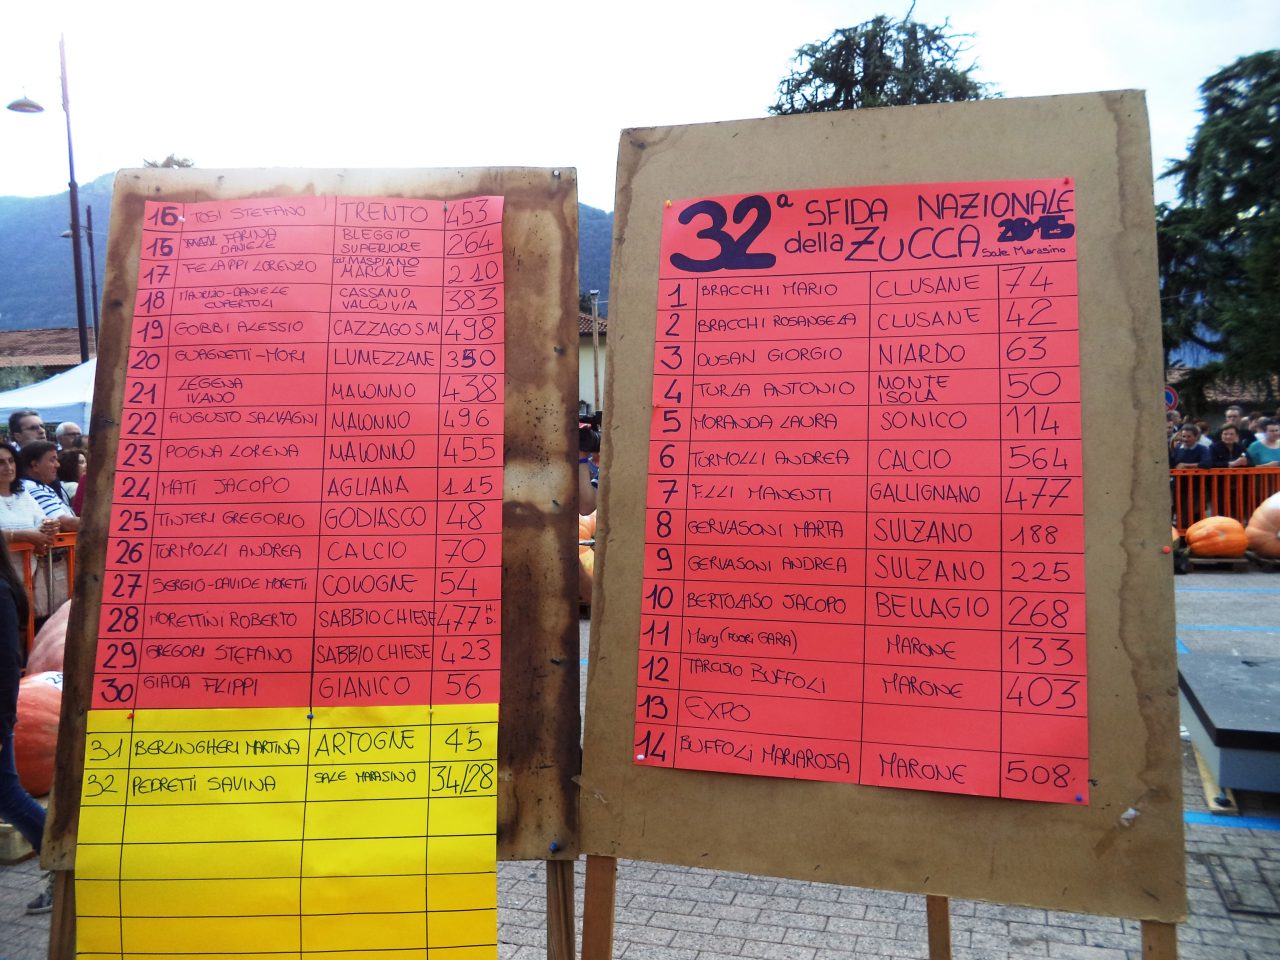 15 TOSI STEFANO TRENTO 453
FARINA BLEGGIO
16 DANIELE SUPERIORE 264
MASPIANO
17 FELAPPI LORENZO MARONE 210
MAURIZIO-DANIELE CASSANO
18 CUPERTOLI VALCUVIA 383
19 GOBBI ALESSIO CAZZAGO S.M 498
20 GUAGNETTI-MORI LUMEZZANE 350
LEGENA
21 IVANO MALONNO 438
22 AUGUSTO SALVAGNI MALONNO 496
23 POGNA LORENA MALONNO 455
24 MATI JACOPO AGLIANA 115
25 TINTERI GREGORIO GODIASCO 48
26 TORMOLLI ANDREA CALCIO 70
27 SERGIO-DAVIDE MORETTI COLOGNE 54
28 MORETTINI ROBERTO SABBIO CHIESE 477 H.D.
29 GREGORI STEFANO SABBIO CHIESE 423
30 GIADA FILIPPI GIANICO 56
31 BERLINGHERI MARTINA ARTOGNE 45
32 PEDRETTI SAVINA SALE MARASINO 34/28
32ª SFIDA NAZIONALE
della ZUCCA 2015
Sale Marasino
1 BRACCHI MARIO CLUSANE 74
2 BRACCHI ROSANGELA CLUSANE 42
3 DUSAN GIORGIO NIARDO 63
4 TURLA ANTONIO MONTE ISOLA 50
5 MORANDA LAURA SONICO 114
6 TORMOLLI ANDREA CALCIO 564
7 F.LLI MANENTI GALLIGNANO 477
8 GERVASONI MARTA SULZANO 188
9 GERVASONI ANDREA SULZANO 225
10 BERTOLASO JACOPO BELLAGIO 268
11 Mary (FUORI GARA) MARONE 133
12 TARCISIO BUFFOLI MARONE 403
13 EXPO
14 BUFFOLI MARIAROSA MARONE 508